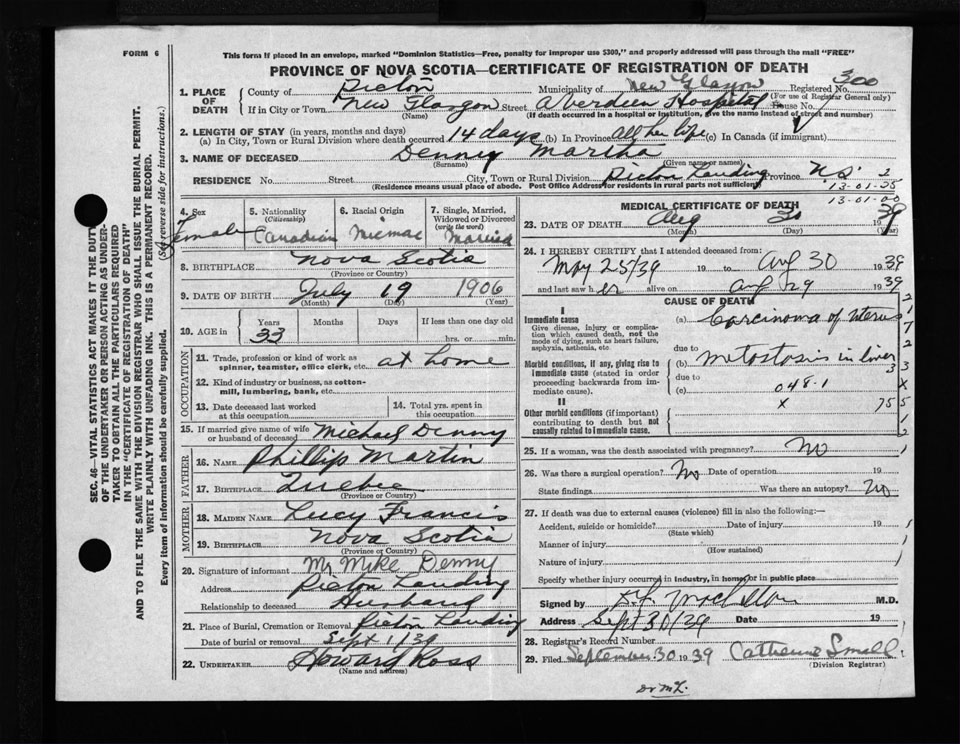 FORM 6
This form if placed in an envelope, marked "Dominion Statistics—Free, penalty for improper use $300," and properly addressed will pass through the mail "FREE"
PROVINCE OF NOVA SCOTIA—CERTIFICATE OF REGISTRATION OF DEATH
1. PLACE OF DEATH
County of Pictou Municipality of New Glasgow Registered No. 300
(For use of Registrar General only)
If in City or Town New Glasgow Street Aberdeen Hospital House No.
(Name) (If death occurred in a hospital or institution, give the name instead of street and number)
2. LENGTH OF STAY (in years, months and days)
(a) In City, Town or Rural Division where death occurred 14 days (b) In Province All her life (c) In Canada (if immigrant)
3. NAME OF DECEASED Denney Martha
(Surname) (Given name or names)
RESIDENCE No. Street City, Town or Rural Division Pictou Landing Province N.S. 2
(Residence means usual place of abode. Post Office Address for residents in rural parts not sufficient)
13-01-25
13-01-00
4. Sex Female
5. Nationality (Citizenship) Canadian
6. Racial Origin Micmac
7. Single, Married, Widowed or Divorced (write the word) Married
8. BIRTHPLACE Nova Scotia
(Province or Country)
9. DATE OF BIRTH July 19 1906
(Month) (Day) (Year)
10. AGE in Years 33 Months Days If less than one day old hrs. or min.
OCCUPATION
11. Trade, profession or kind of work as spinner, teamster, office clerk, etc. at home
12. Kind of industry or business, as cotton-mill, lumbering, bank, etc.
13. Date deceased last worked at this occupation
14. Total yrs. spent in this occupation
15. If married give name of wife or husband of deceased Michael Denny
FATHER
16. NAME Phillip Martin
17. BIRTHPLACE Quebec
(Province or Country)
MOTHER
18. MAIDEN NAME Lucy Francis
19. BIRTHPLACE Nova Scotia
(Province or Country)
20. Signature of informant Mr Mike Denny
Address Pictou Landing
Relationship to deceased Husband
21. Place of Burial, Cremation or Removal Pictou Landing
Date of burial or removal Sept 1/39
22. UNDERTAKER Howard Ross
(Name and address)
MEDICAL CERTIFICATE OF DEATH
23. DATE OF DEATH Aug 30 1939
(Month) (Day) (Year)
24. I HEREBY CERTIFY that I attended deceased from:
May 25/39 19 to Aug 30 1939
and last saw her alive on Aug 29 1939
CAUSE OF DEATH
I
Immediate cause (a) Carcinoma of Uterus
Give disease, injury or complication which caused death, not the mode of dying, such as heart failure, asphyxia, asthenia, etc.
due to
Morbid conditions, if any, giving rise to immediate cause (stated in order proceeding backwards from immediate cause).
(b) Metostosis in liver
due to
(c) 048-1
II
Other morbid conditions (if important) contributing to death but not causally related to immediate cause.
x 755
25. If a woman, was the death associated with pregnancy? No
26. Was there a surgical operation? No Date of operation 19
State findings Was there an autopsy? No
27. If death was due to external causes (violence) fill in also the following:—
Accident, suicide or homicide? Date of injury 19
(State which)
Manner of injury
(How sustained)
Nature of injury
Specify whether injury occurred in industry, in home or in public place
Signed by M.D.
Address Sept 30/39 Date 19
28. Registrar's Record Number
29. Filed September 30 1939 Catherine Small
(Division Registrar)
Dr ML.
SEC. 46—VITAL STATISTICS ACT MAKES IT THE DUTY
OF THE UNDERTAKER OR PERSON ACTING AS UNDER-
TAKER TO OBTAIN ALL THE PARTICULARS REQUIRED
IN THE "CERTIFICATE OF REGISTRATION OF DEATH"
AND TO FILE THE SAME WITH THE DIVISION REGISTRAR WHO SHALL ISSUE THE BURIAL PERMIT.
WRITE PLAINLY WITH UNFADING INK. THIS IS A PERMANENT RECORD.
Every item of information should be carefully supplied. (See reverse side for instructions.)